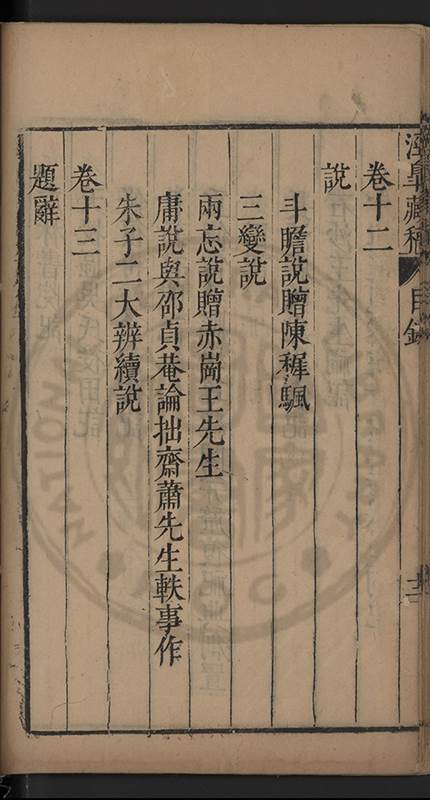 涇臯藏稿 目錄 十二
卷十二
說
斗瞻說贈陳穉颿
三變說
兩忘說贈赤崗王先生
庸說與邵貞菴論拙齋蕭先生軼事作
朱子二大辨續說
卷十三
題辭